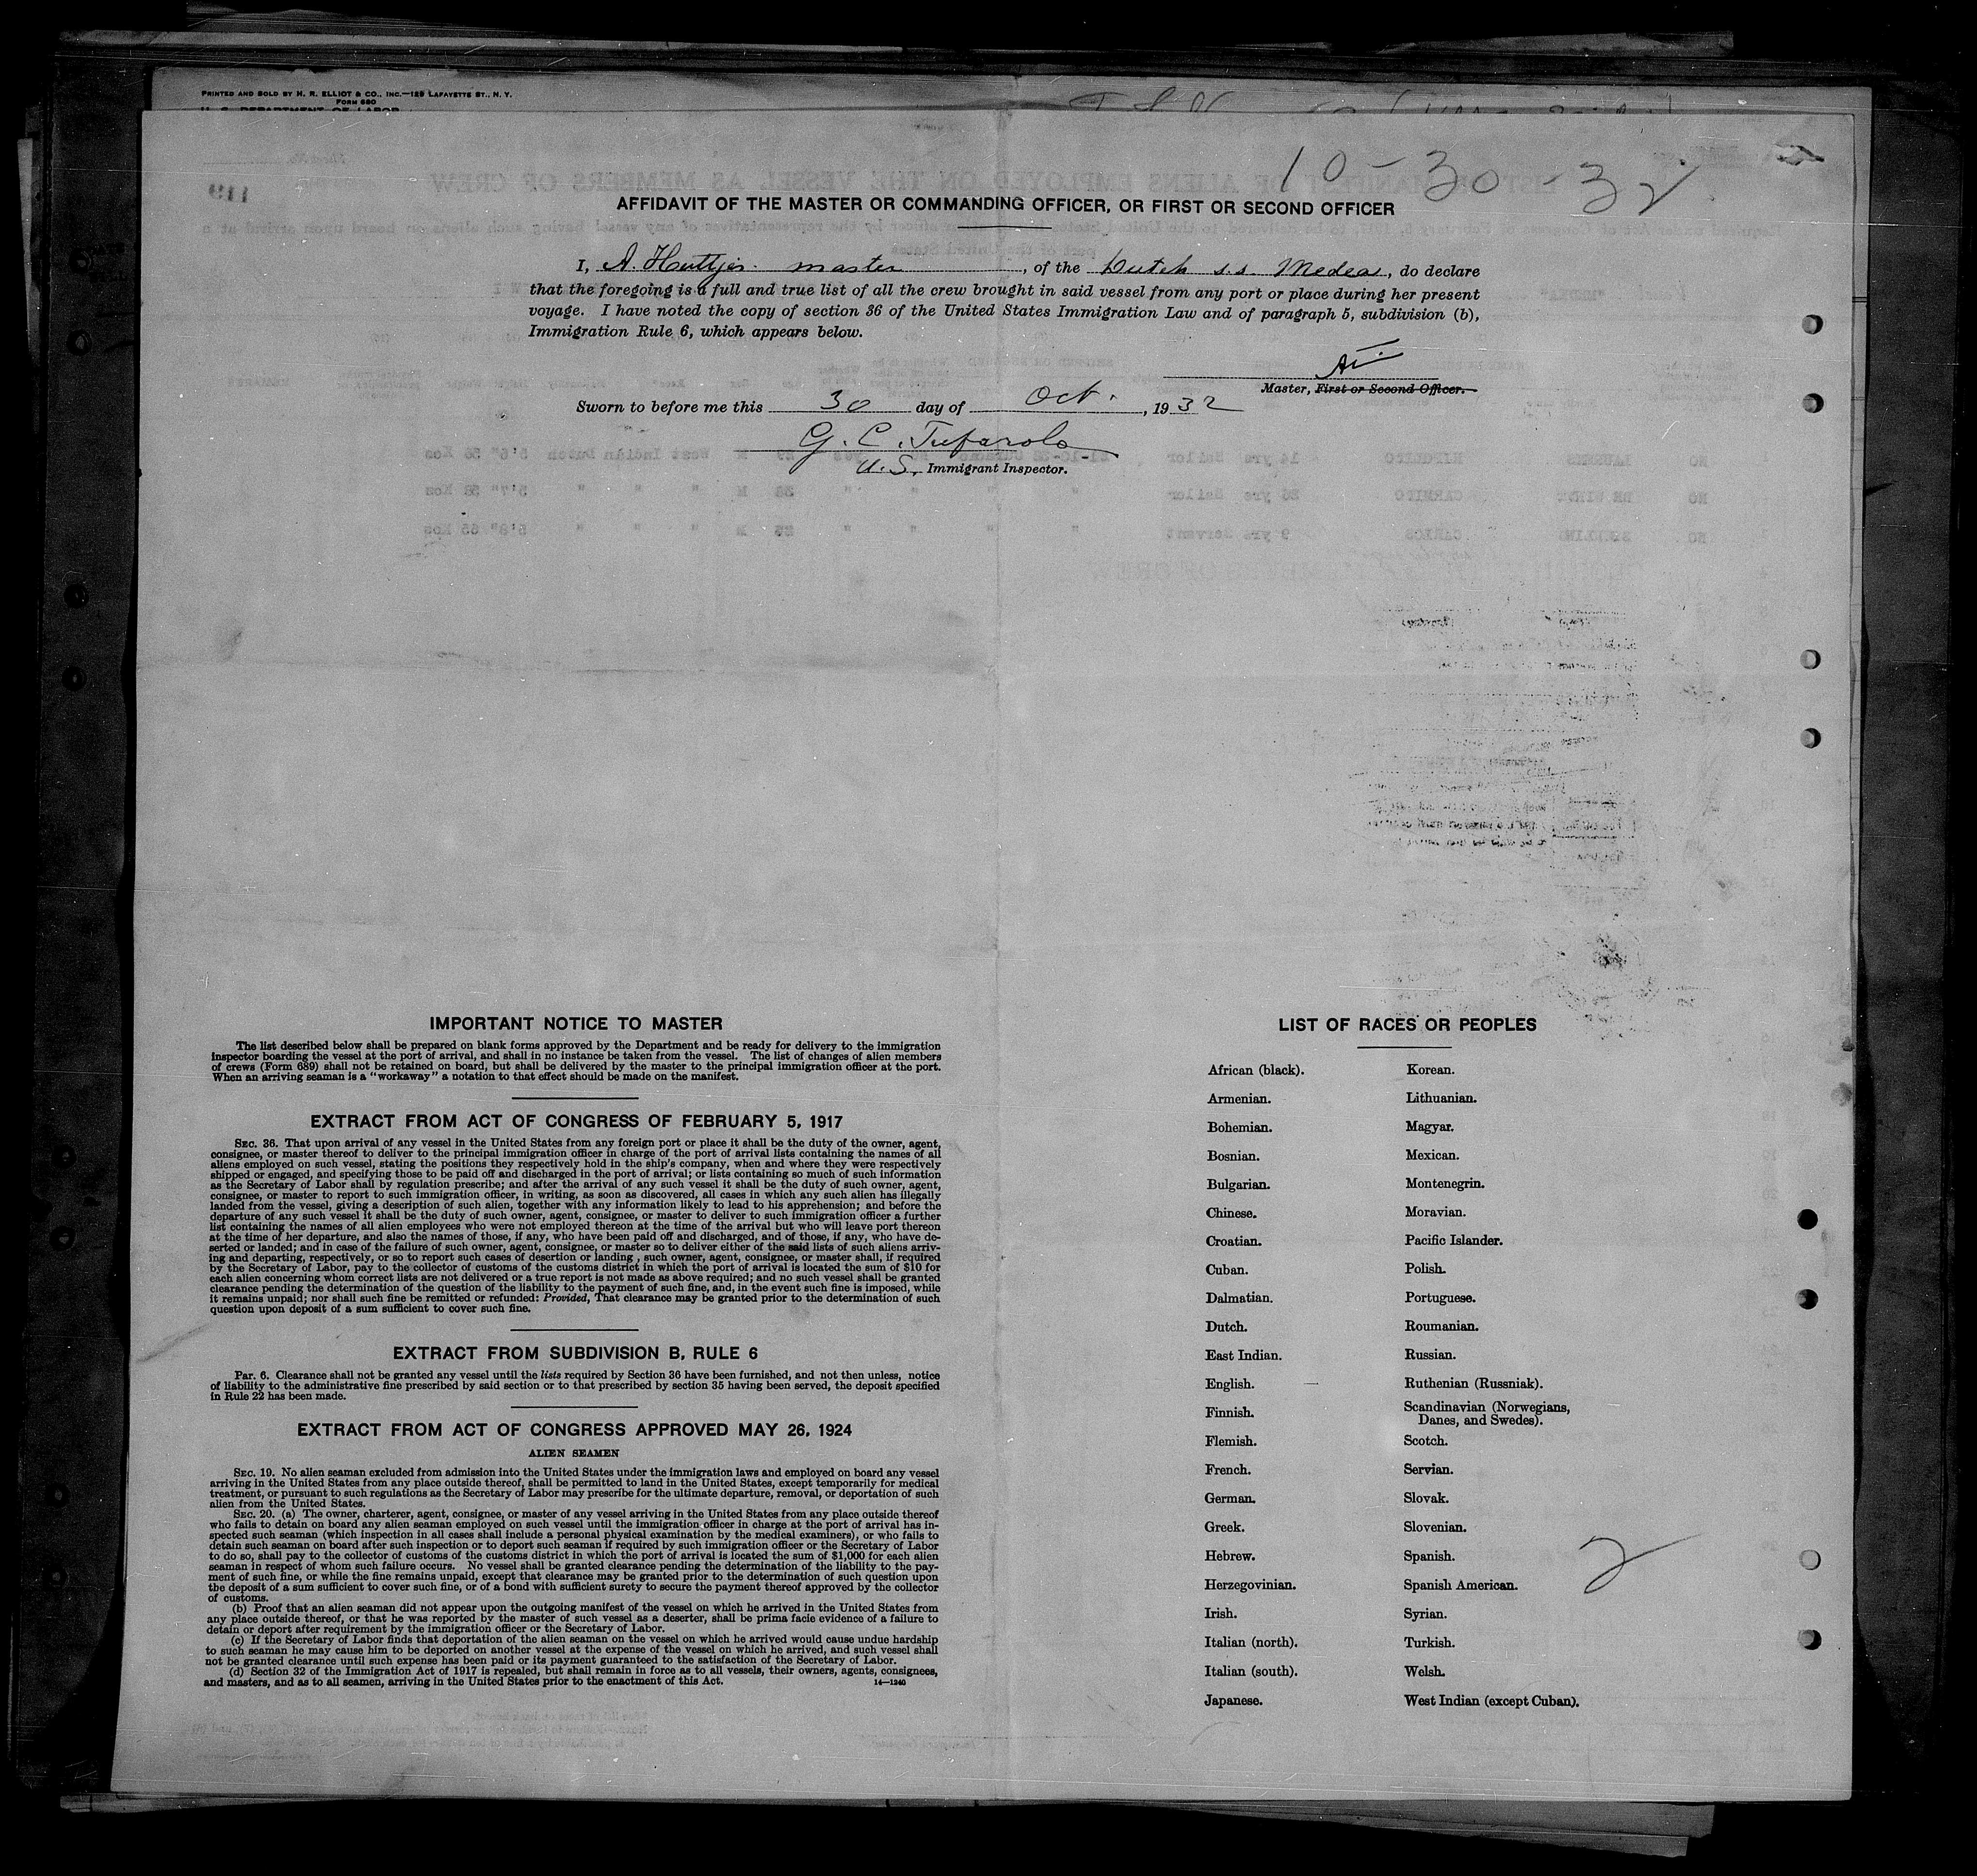 PRINTED AND SOLD BY H. R. ELLIOT & CO., INC.—129 LAFAYETTE ST., N. Y.
FORM 680
U. S. DEPARTMENT OF LABOR
10-30-32
AFFIDAVIT OF THE MASTER OR COMMANDING OFFICER, OR FIRST OR SECOND OFFICER
I, A. master, of the Dutch s.s. Medea, do declare
that the foregoing is a full and true list of all the crew brought in said vessel from any port or place during her present
voyage. I have noted the copy of section 36 of the United States Immigration Law and of paragraph 5, subdivision (b),
Immigration Rule 6, which appears below.
Master, First or Second Officer.
Sworn to before me this 30 day of Oct., 1932
G. C. Tufarolo
U.S. Immigrant Inspector.
IMPORTANT NOTICE TO MASTER
The list described below shall be prepared on blank forms approved by the Department and be ready for delivery to the immigration
inspector boarding the vessel at the port of arrival, and shall in no instance be taken from the vessel. The list of changes of alien members
of crews (Form 689) shall not be retained on board, but shall be delivered by the master to the principal immigration officer at the port.
When an arriving seaman is a "workaway" a notation to that effect should be made on the manifest.
EXTRACT FROM ACT OF CONGRESS OF FEBRUARY 5, 1917
SEC. 36. That upon arrival of any vessel in the United States from any foreign port or place it shall be the duty of the owner, agent,
consignee, or master thereof to deliver to the principal immigration officer in charge of the port of arrival lists containing the names of all
aliens employed on such vessel, stating the positions they respectively hold in the ship's company, when and where they were respectively
shipped or engaged, and specifying those to be paid off and discharged in the port of arrival; or lists containing so much of such information
as the Secretary of Labor shall by regulation prescribe; and after the arrival of any such vessel it shall be the duty of such owner, agent,
consignee, or master to report to such immigration officer, in writing, as soon as discovered, all cases in which any such alien has illegally
landed from the vessel, giving a description of such alien, together with any information likely to lead to his apprehension; and before the
departure of any such vessel it shall be the duty of such owner, agent, consignee, or master to deliver to such immigration officer a further
list containing the names of all alien employees who were not employed thereon at the time of the arrival but who will leave port thereon
at the time of her departure, and also the names of those, if any, who have been paid off and discharged, and of those, if any, who have de-
serted or landed; and in case of the failure of such owner, agent, consignee, or master so to deliver either of the said lists of such aliens arriv-
ing and departing, respectively, or so to report such cases of desertion or landing , such owner, agent, consignee, or master shall, if required
by the Secretary of Labor, pay to the collector of customs of the customs district in which the port of arrival is located the sum of $10 for
each alien concerning whom correct lists are not delivered or a true report is not made as above required; and no such vessel shall be granted
clearance pending the determination of the question of the liability to the payment of such fine, and, in the event such fine is imposed, while
it remains unpaid; nor shall such fine be remitted or refunded: Provided, That clearance may be granted prior to the determination of such
question upon deposit of a sum sufficient to cover such fine.
EXTRACT FROM SUBDIVISION B, RULE 6
PAR. 6. Clearance shall not be granted any vessel until the lists required by Section 36 have been furnished, and not then unless, notice
of liability to the administrative fine prescribed by said section or to that prescribed by section 35 having been served, the deposit specified
in Rule 22 has been made.
EXTRACT FROM ACT OF CONGRESS APPROVED MAY 26, 1924
ALIEN SEAMEN
SEC. 19. No alien seaman excluded from admission into the United States under the immigration laws and employed on board any vessel
arriving in the United States from any place outside thereof, shall be permitted to land in the United States, except temporarily for medical
treatment, or pursuant to such regulations as the Secretary of Labor may prescribe for the ultimate departure, removal, or deportation of such
alien from the United States.
SEC. 20. (a) The owner, charterer, agent, consignee, or master of any vessel arriving in the United States from any place outside thereof
who fails to detain on board any alien seaman employed on such vessel until the immigration officer in charge at the port of arrival has in-
spected such seaman (which inspection in all cases shall include a personal physical examination by the medical examiners), or who fails to
detain such seaman on board after such inspection or to deport such seaman if required by such immigration officer or the Secretary of Labor
to do so, shall pay to the collector of customs of the customs district in which the port of arrival is located the sum of $1,000 for each alien
seaman in respect of whom such failure occurs. No vessel shall be granted clearance pending the determination of the liability to the pay-
ment of such fine, or while the fine remains unpaid, except that clearance may be granted prior to the determination of such question upon
the deposit of a sum sufficient to cover such fine, or of a bond with sufficient surety to secure the payment thereof approved by the collector
of customs.
(b) Proof that an alien seaman did not appear upon the outgoing manifest of the vessel on which he arrived in the United States from
any place outside thereof, or that he was reported by the master of such vessel as a deserter, shall be prima facie evidence of a failure to
detain or deport after requirement by the immigration officer or the Secretary of Labor.
(c) If the Secretary of Labor finds that deportation of the alien seaman on the vessel on which he arrived would cause undue hardship
to such seaman he may cause him to be deported on another vessel at the expense of the vessel on which he arrived, and such vessel shall
not be granted clearance until such expense has been paid or its payment guaranteed to the satisfaction of the Secretary of Labor.
(d) Section 32 of the Immigration Act of 1917 is repealed, but shall remain in force as to all vessels, their owners, agents, consignees,
and masters, and as to all seamen, arriving in the United States prior to the enactment of this Act.
14—1240
LIST OF RACES OR PEOPLES
African (black).
Armenian.
Bohemian.
Bosnian.
Bulgarian.
Chinese.
Croatian.
Cuban.
Dalmatian.
Dutch.
East Indian.
English.
Finnish.
Flemish.
French.
German.
Greek.
Hebrew.
Herzegovinian.
Irish.
Italian (north).
Italian (south).
Japanese.
Korean.
Lithuanian.
Magyar.
Mexican.
Montenegrin.
Moravian.
Pacific Islander.
Polish.
Portuguese.
Roumanian.
Russian.
Ruthenian (Russniak).
Scandinavian (Norwegians,
Danes, and Swedes).
Scotch.
Servian.
Slovak.
Slovenian.
Spanish.
Spanish American.
Syrian.
Turkish.
Welsh.
West Indian (except Cuban).
2